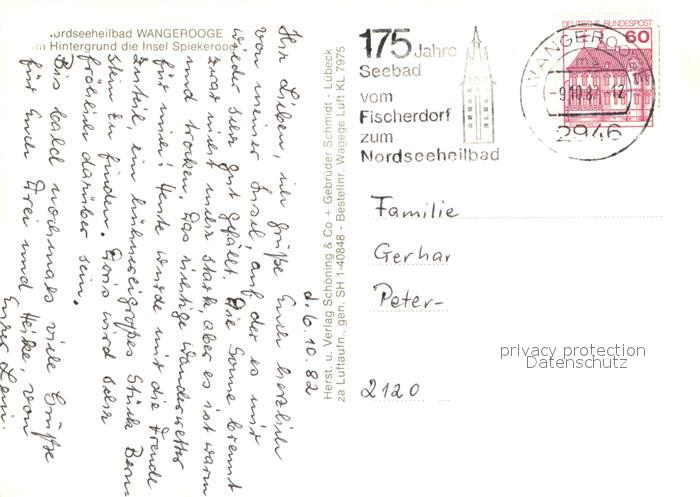 Nordseeheilbad WANGEROOGE
Im Hintergrund die Insel Spiekeroog
d. 6.10.82
Ihr Lieben, ich grüße Euch herzlich
von meiner Insel, auf der es mir
wieder sehr gut gefällt. Die Sonne brennt
zwar nicht mehr stark, aber es ist warm
und trocken. Das richtige Wanderwetter
für mich! Heute wurde mir die Freude
zuteil, ein hühnereigroßes Stück Bern-
stein zu finden. Doris wird sehr
fröhlich darüber sein.
Bis bald nochmals viele Grüße
für Euch Drei und Heike, von
Eurer
Herst. u. Verlag Schöning & Co + Gebrüder Schmidt - Lübeck
za Luftaufn., gen. SH 1-40848 - Bestellnr. Wagege Luft KL 7975
175 Jahre
Seebad
vom
Fischerdorf
zum
Nordseeheilbad
DEUTSCHE BUNDESPOST
60
WANGEROOGE
-9.10.8 .-12
2946
Familie
Gerhar
Peter-
2120
privacy protection
Datenschutz